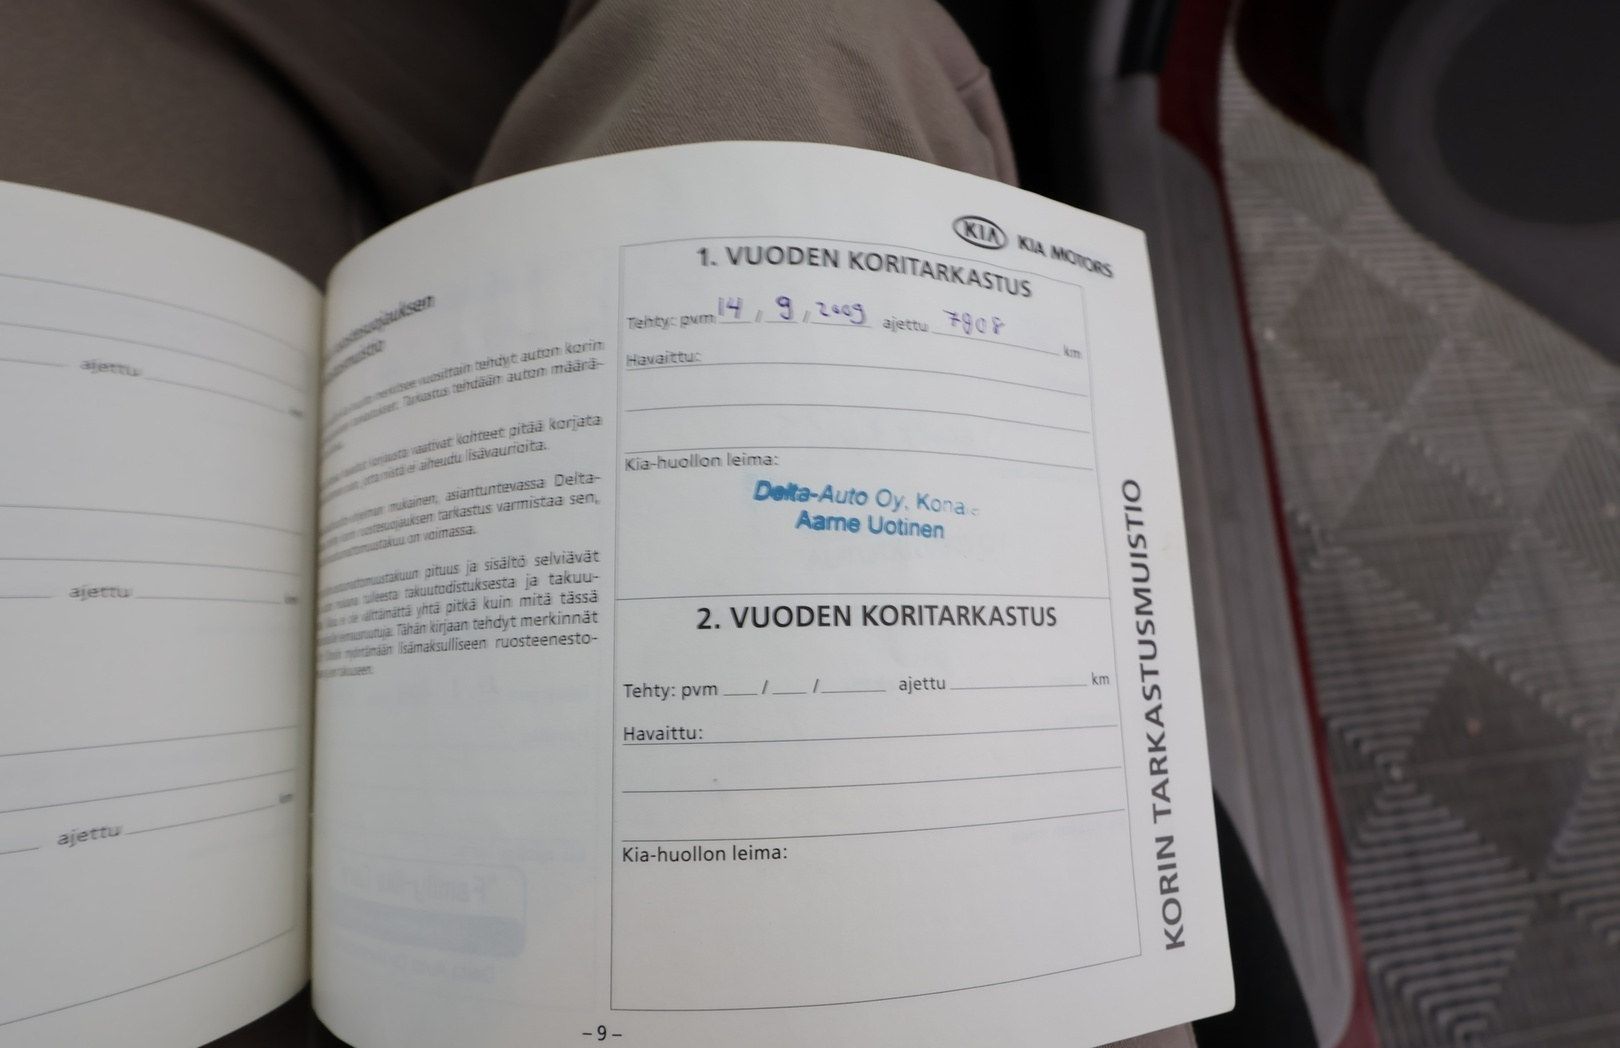 ajettu km
ajettu km
ajettu km
ruostesuojauksen
vuosittain tehdyt auton korin
Tarkastus tehdään auton määrä-
vaativat kohteet pitää korjata
että niistä ei aiheudu lisävaurioita.
mukainen, asiantuntevassa Delta-
ruostesuojauksen tarkastus varmistaa sen,
on voimassa.
pituus ja sisältö selviävät
takuutodistuksesta ja takuu-
välttämättä yhtä pitkä kuin mitä tässä
Tähän kirjaan tehdyt merkinnät
lisämaksulliseen ruosteenesto-
KIA KIA MOTORS
1. VUODEN KORITARKASTUS
Tehty: pvm 14 / 9 / 2009 ajettu 7908 km
Havaittu:
Kia-huollon leima:
Delta-Auto Oy, Kona
Aarne Uotinen
2. VUODEN KORITARKASTUS
Tehty: pvm ___ / ___ / ______ ajettu ____________ km
Havaittu:
Kia-huollon leima:
KORIN TARKASTUSMUISTIO
– 9 –